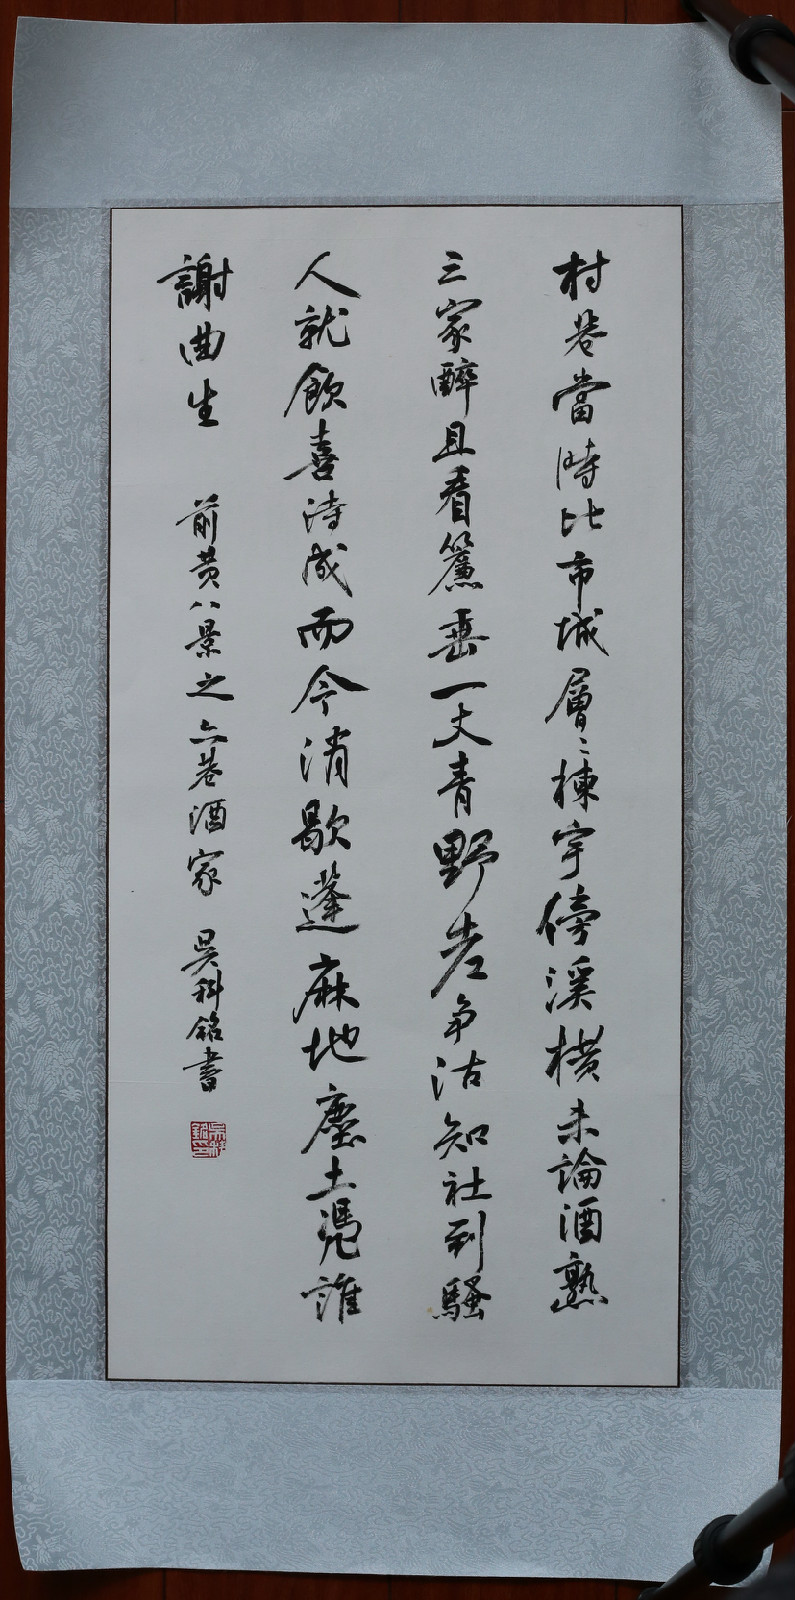 村巷當時比市城層〻棟宇傍溪橫未論酒熟
三家醉且看簾垂一丈青野老争沽知社到騷
人就飲喜詩成而今消歇蓬麻地塵土凴誰
謝曲生 前黄八景之六巷酒家 吴科銘書
吴科銘印